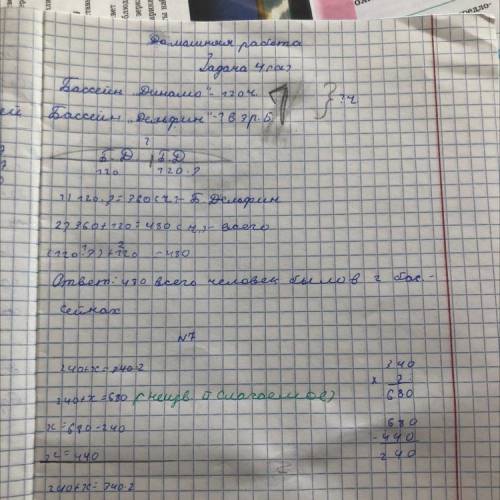 Домашняя работа
Задача 4 (а)
Бассейн "Динамо" - 120 ч.
Бассейн "Дельфин" - ? в 3 р. Б. } ? ч
?
Б. Д | Б. Д
120 120.3
1) 120.3=360(ч.)- Б Дельфин
2) 360+120=480(ч.)- всего
(120.3)+120 -480
Ответ: 480 всего человек было в 2 бас-
сейнах
№7
240+х=340.2
240+х=680 (неизв. II слагаемое)
х=680-240
х=440
240+х=340.2
340
х 2
680
680
-440
240